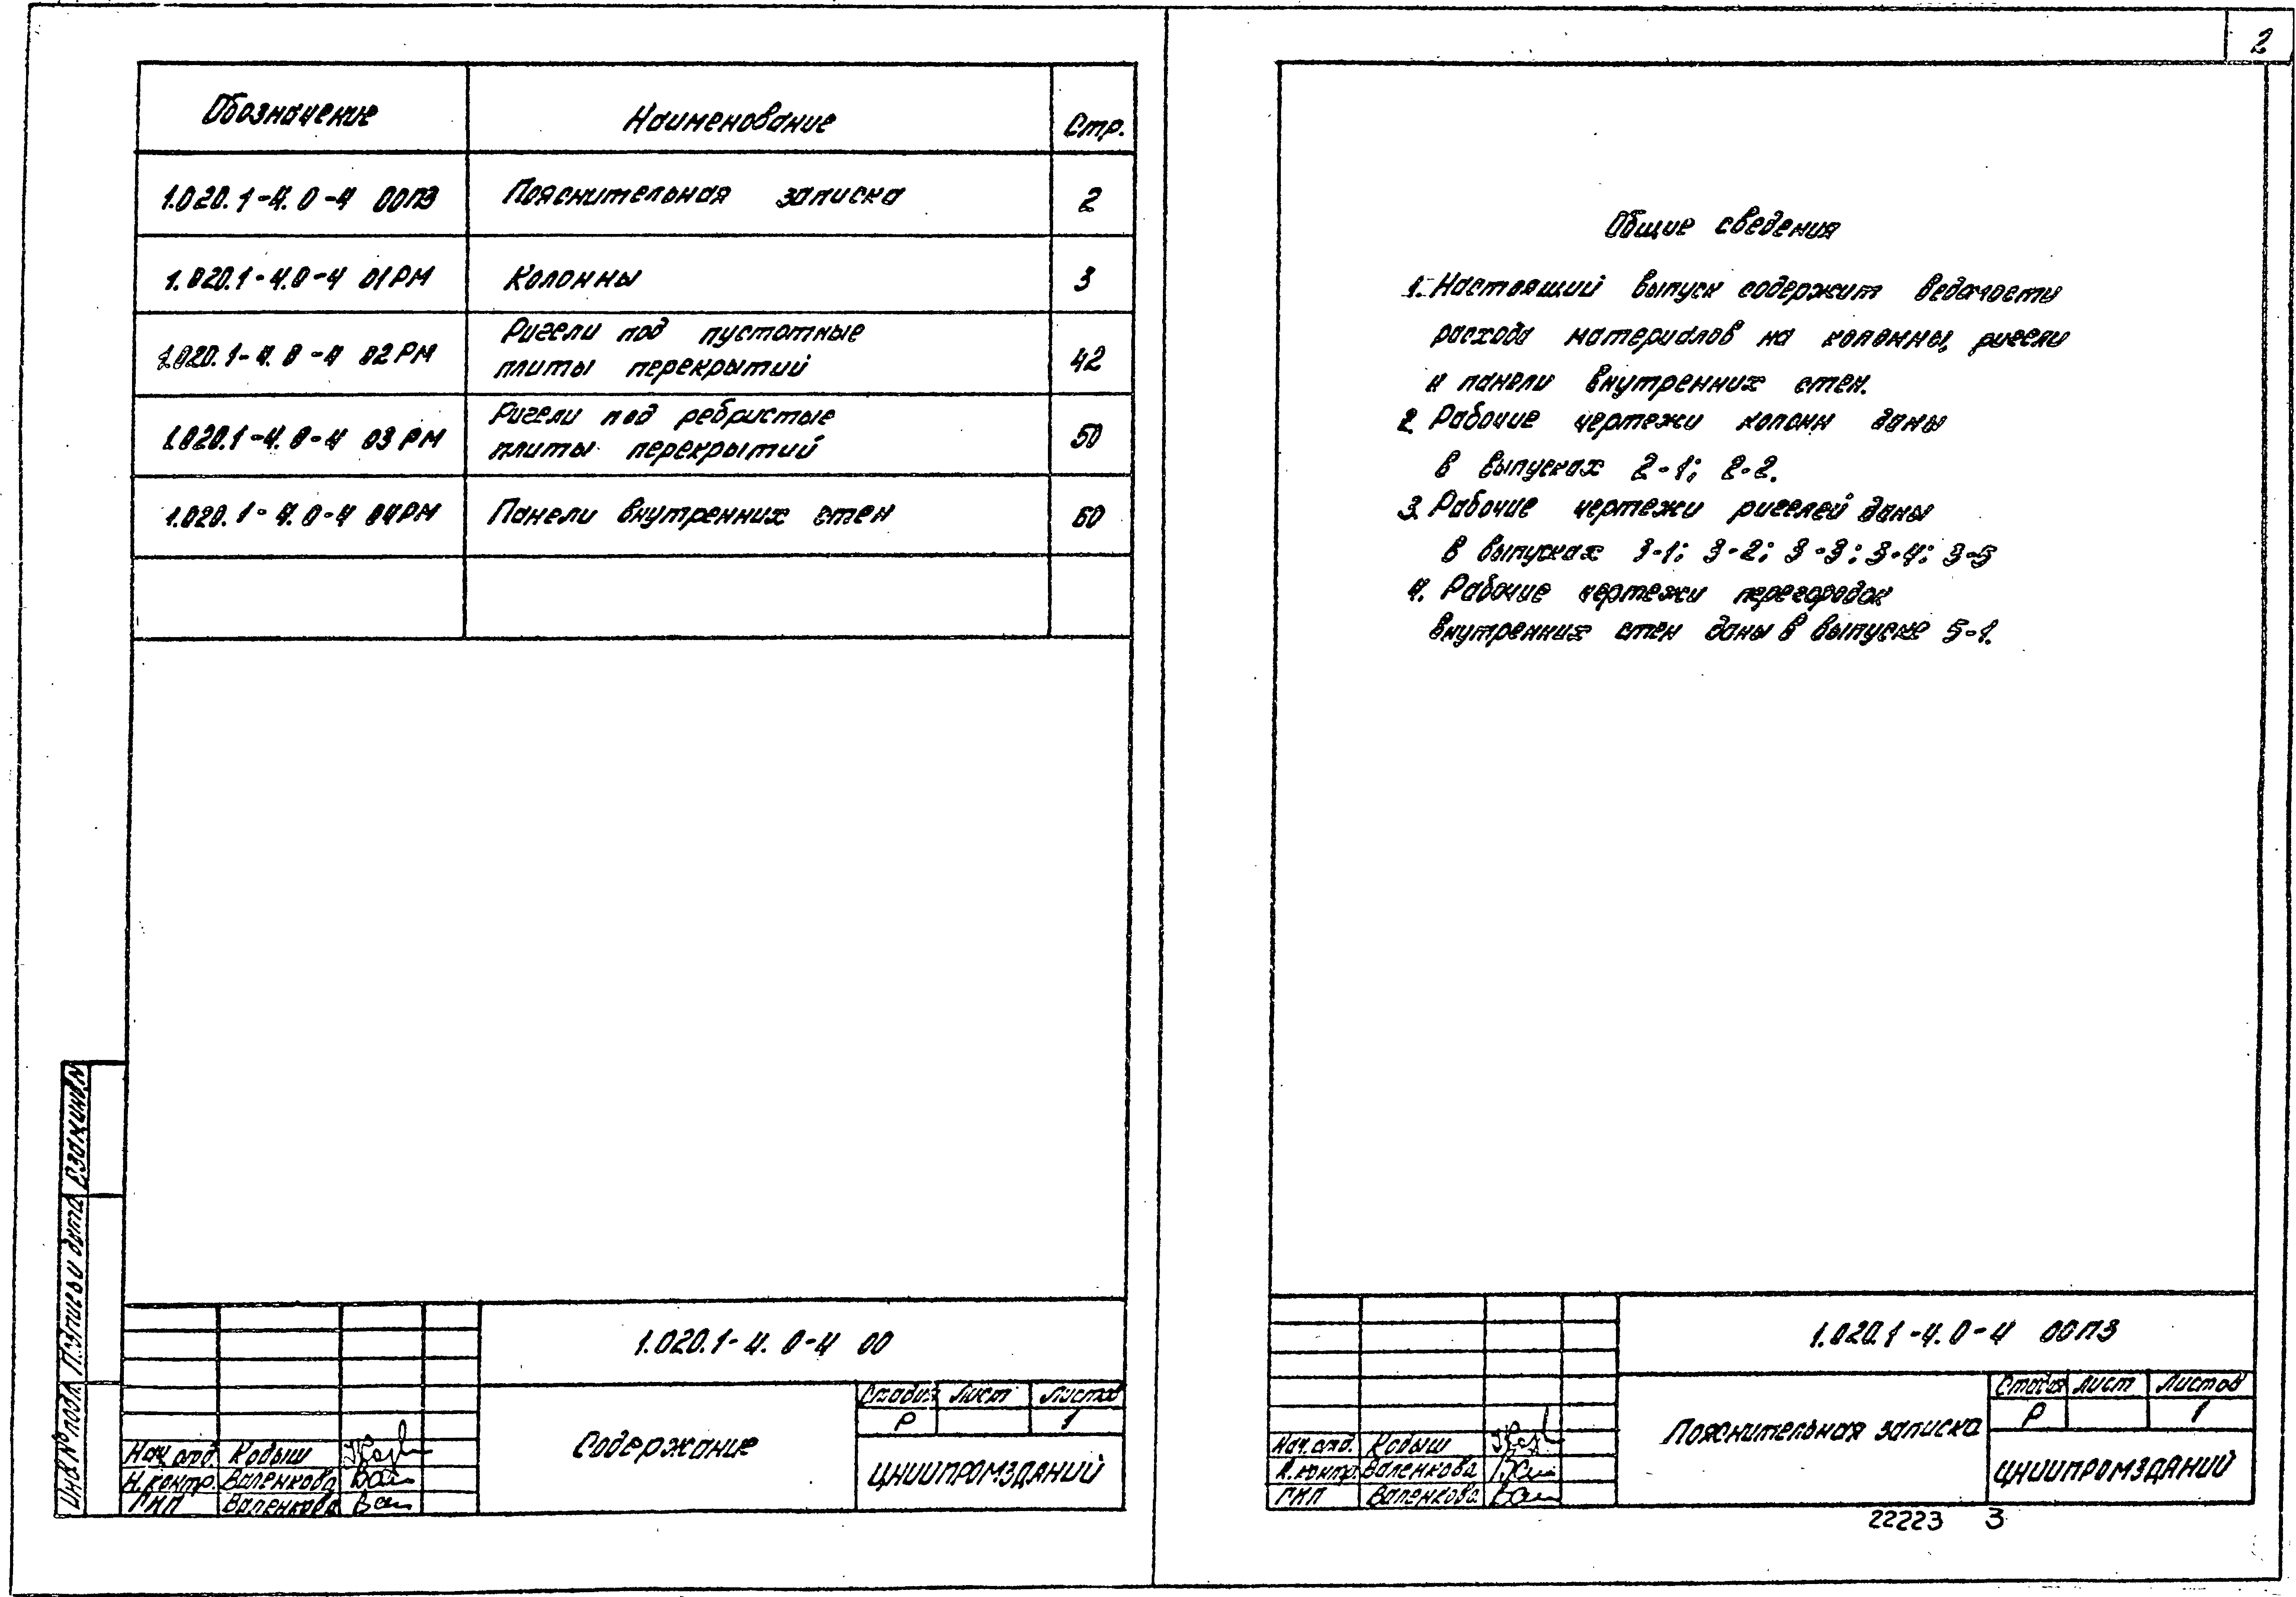 Обозначение Наименование Стр.
1.020.1-4.0-4 00ПЗ Пояснительная записка 2
1.020.1-4.0-4 01РМ Колонны 3
1.020.1-4.0-4 02РМ Ригели под пустотные
плиты перекрытий 42
1.020.1-4.0-4 03РМ Ригели под ребристые
плиты перекрытий 50
1.020.1-4.0-4 04РМ Панели внутренних стен 60
Взам.инв.№
Подпись и дата
Инв.№ подл.
1.020.1-4.0-4 00
Содержание
Стадия Лист Листов
Р 1
ЦНИИПРОМЗДАНИЙ
Нач. отд. Кодыш
Н. контр. Валенкова
ГИП Валенкова
2
Общие сведения
1. Настоящий выпуск содержит ведомости
расхода материалов на колонны, ригели
и панели внутренних стен.
2. Рабочие чертежи колонн даны
в выпусках 2-1; 2-2.
3. Рабочие чертежи ригелей даны
в выпусках 3-1; 3-2; 3-3; 3-4; 3-5
4. Рабочие чертежи перегородок
внутренних стен даны в выпуске 5-1.
1.020.1-4.0-4 00ПЗ
Пояснительная записка
Стадия Лист Листов
Р 1
ЦНИИПРОМЗДАНИЙ
Нач. отд. Кодыш
Н. контр. Валенкова
ГИП Валенкова
22223 3